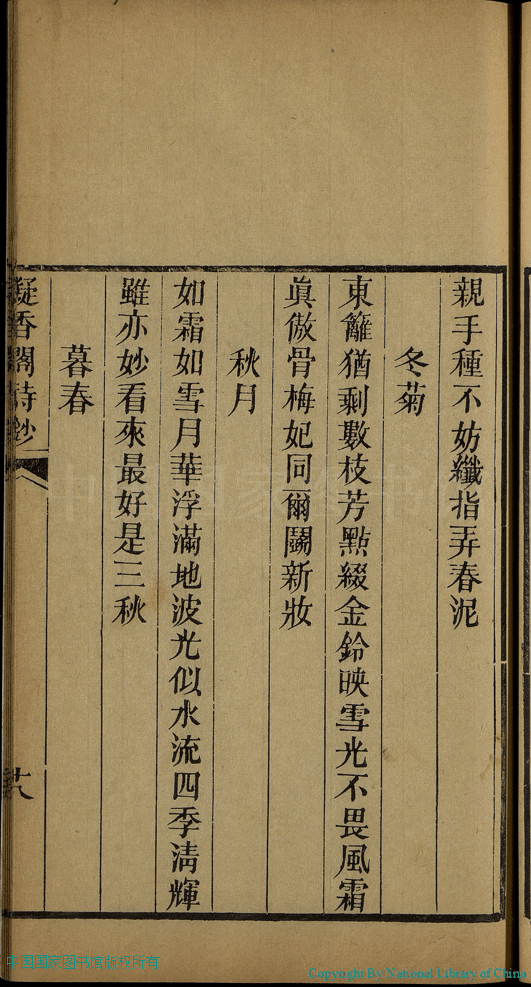 親手種不妨纖指弄春泥
冬菊
東籬猶剩數枝芳點綴金鈴映雪光不畏風霜
眞傲骨梅妃同爾鬬新妝
秋月
如霜如雪月華浮滿地波光似水流四季淸輝
雖亦妙看來最好是三秋
暮春
凝香閣詩鈔
中国国家图书馆版权所有
Copyright By National Library of China